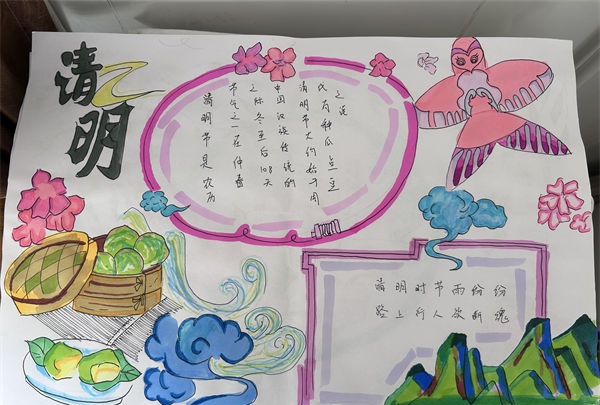 清明
清明节是农历
节气之一在仲春
之际冬至后108天
中国汉族传统的
清明节大约始于周
代有种瓜点豆
之说
清明时节雨纷纷
路上行人欲断魂